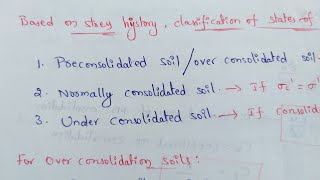 Based on stress history, classification of states of
1. Preconsolidated soil / over consolidated soil.
2. Normally consolidated soil. → If σc' = σ'
3. Under consolidated soil. → If consolid
For Over Consolidation soils: